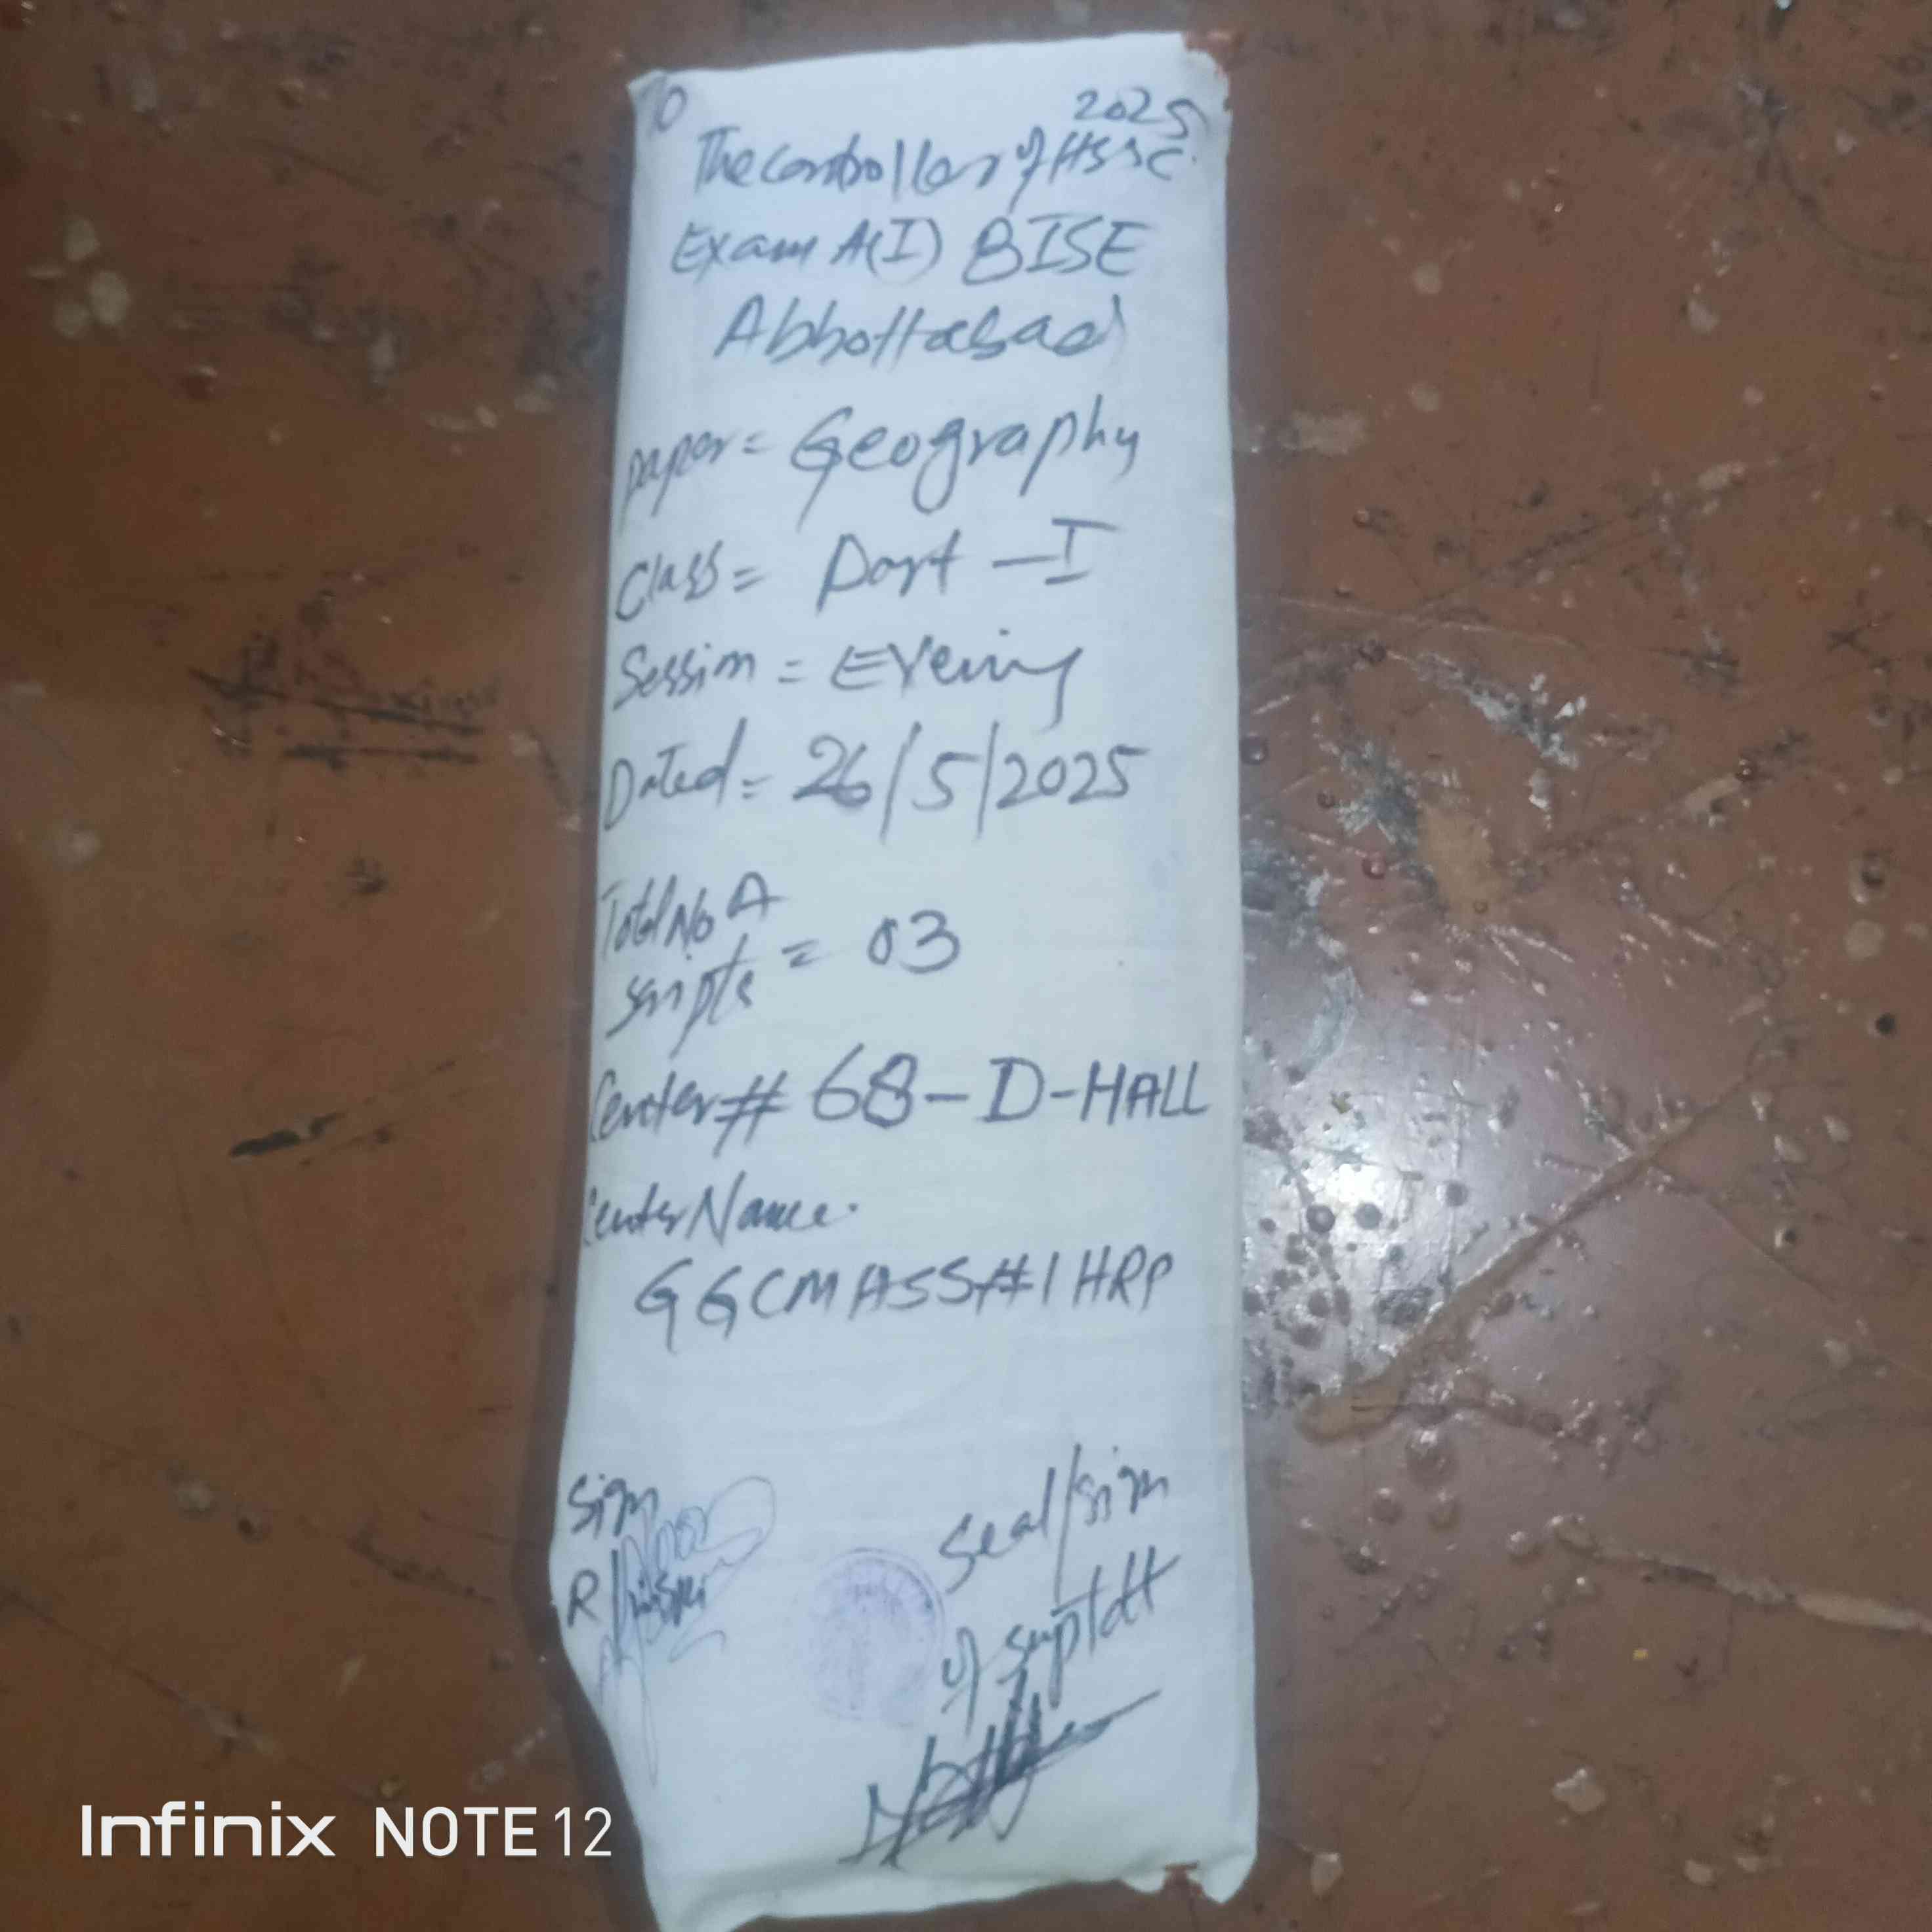 2025
The controller of HSSC
Exam A(I) BISE
Abbottabad
paper = Geography
Class = Part - I
Session = Evening
Dated = 26/5/2025
Total No A
scripts = 03
Center # 68-D-HALL
Center Name.
GGCMHSS#1 HRP
Sign
R
Seal/sign
of suptdtt
Infinix NOTE 12